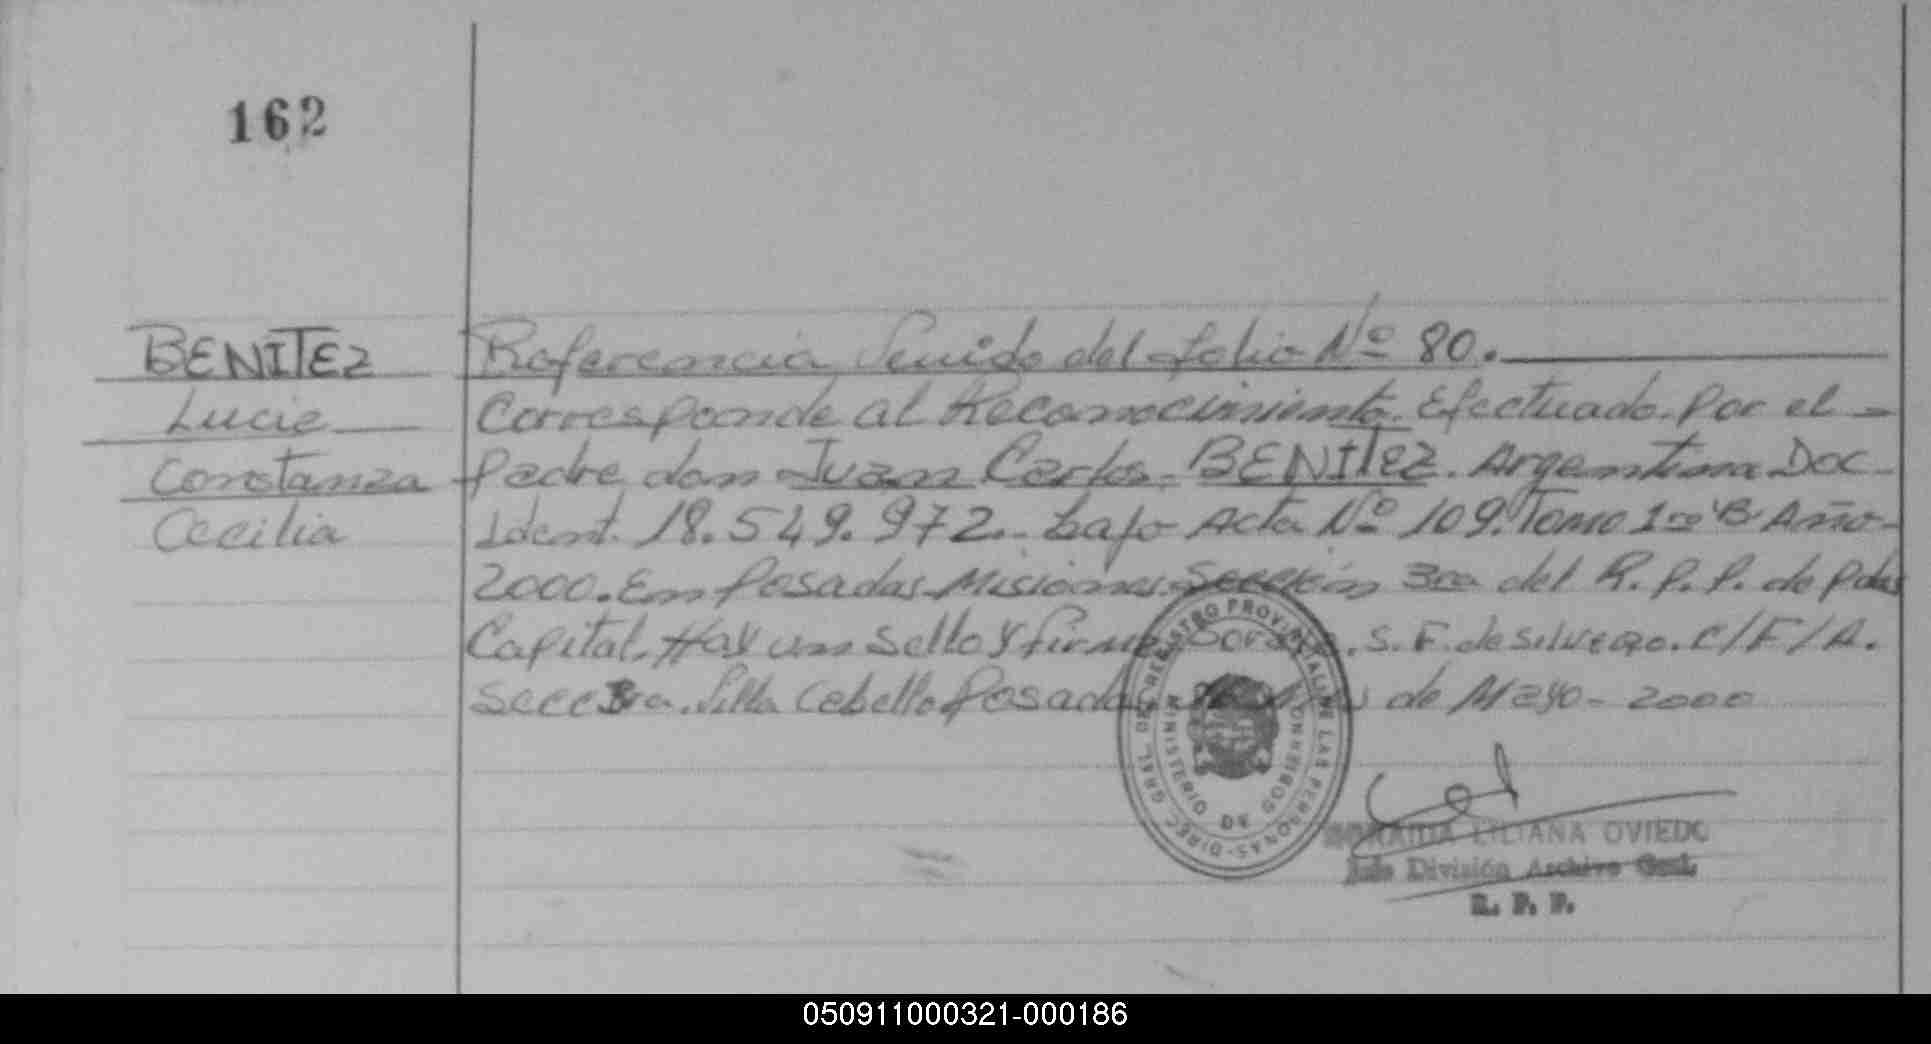 162
BENITEZ
Lucie
Constanza
Cecilia
Referencia Venido del folio Nº 80.
Corresponde al Reconocimiento. Efectuado. Por el
Padre don Juan Carlos. BENITEZ. Argentina Doc
Ident. 18.549.972. bajo Acta Nº 109. Tomo 1ro "B" Año
2000. En Posadas Misiones. Sección 3ra del R.P.P. de Pdas
Capital. Hay un Sello y firma S.F. de Silvero. C/F/A.
Secc 3ra. Villa Cabello Posadas de Mayo - 2000
DIREC. GRAL. DEL REGISTRO PROVINCIAL DE LAS PERSONAS
MINISTERIO DE GOBIERNO
LILIANA OVIEDO
Jefe División Archivo Gral.
R. P. P.
050911000321-000186